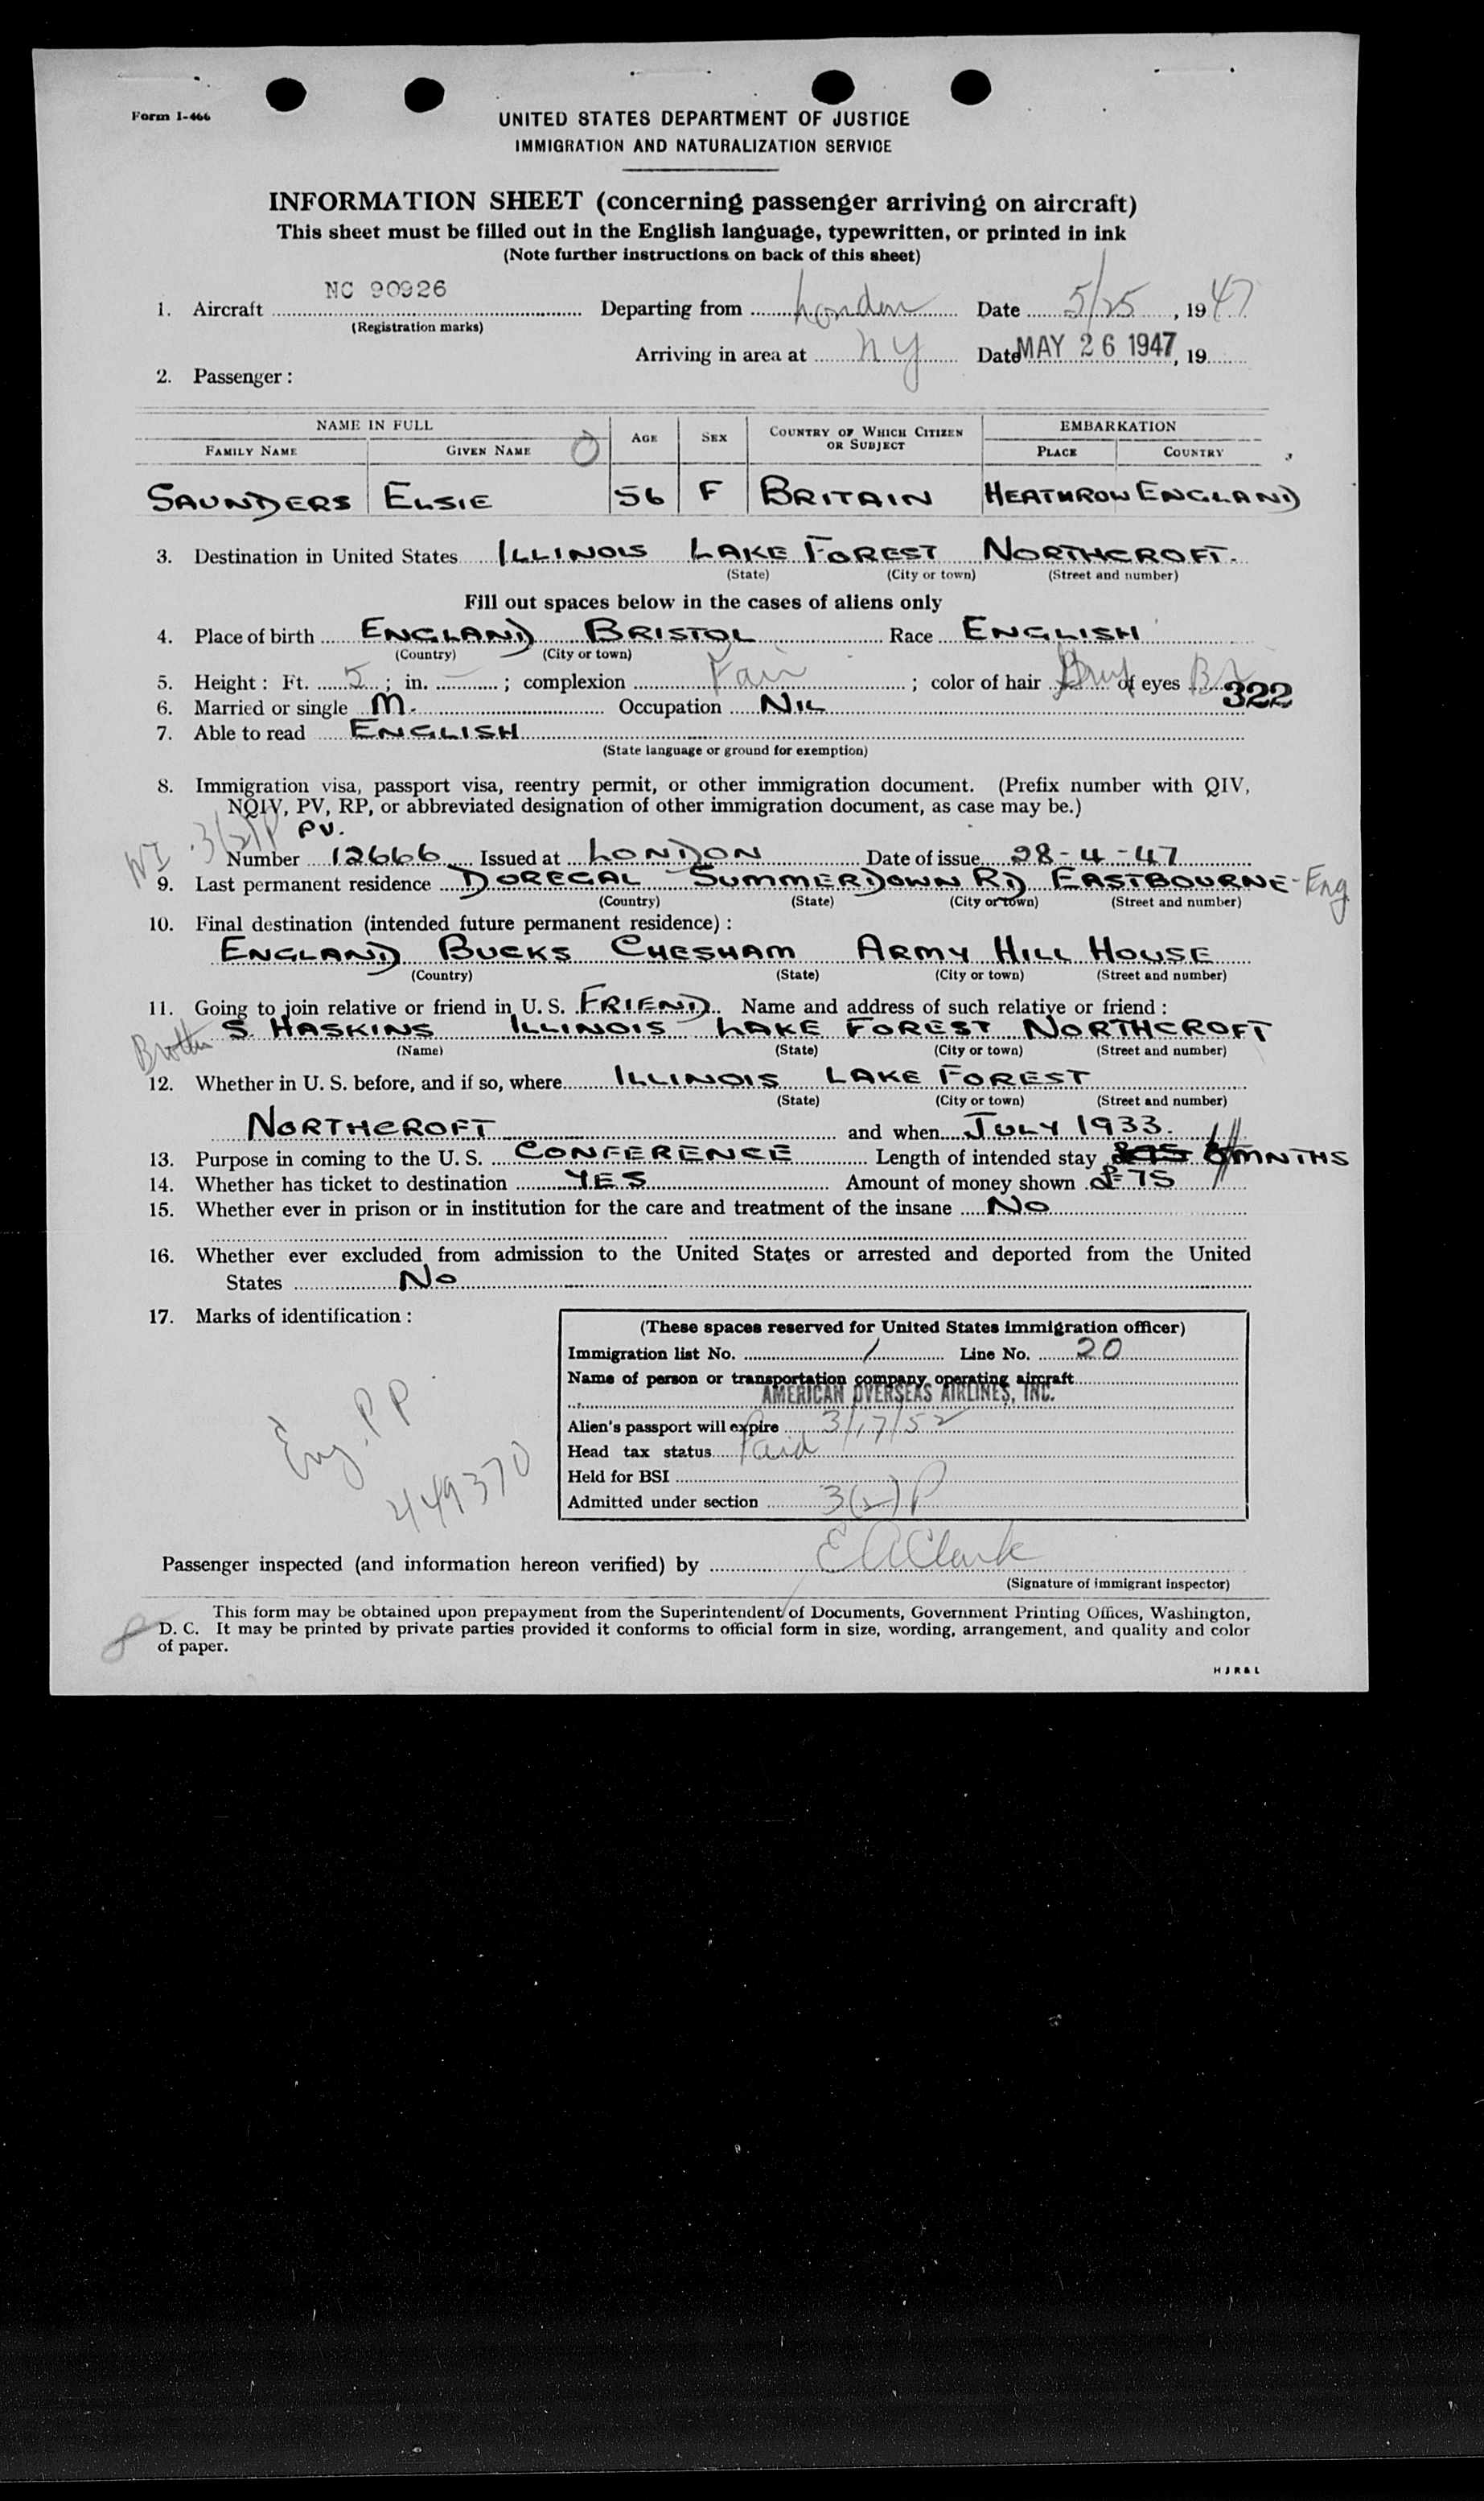 Form I-466
UNITED STATES DEPARTMENT OF JUSTICE
IMMIGRATION AND NATURALIZATION SERVICE
INFORMATION SHEET (concerning passenger arriving on aircraft)
This sheet must be filled out in the English language, typewritten, or printed in ink
(Note further instructions on back of this sheet)
1. Aircraft NC 90926 Departing from London Date 5/25, 1947
(Registration marks)
Arriving in area at NY Date MAY 26 1947, 19
2. Passenger:
NAME IN FULL AGE SEX COUNTRY OF WHICH CITIZEN OR SUBJECT EMBARKATION
FAMILY NAME GIVEN NAME PLACE COUNTRY
SAUNDERS ELSIE 56 F BRITAIN HEATHROW ENGLAND
3. Destination in United States ILLINOIS LAKE FOREST NORTHCROFT.
(State) (City or town) (Street and number)
Fill out spaces below in the cases of aliens only
4. Place of birth ENGLAND BRISTOL Race ENGLISH
(Country) (City or town)
5. Height: Ft. 5; in. —; complexion Fair; color of hair of eyes
322
6. Married or single M. Occupation NIL
7. Able to read ENGLISH
(State language or ground for exemption)
8. Immigration visa, passport visa, reentry permit, or other immigration document. (Prefix number with QIV,
NQIV, PV, RP, or abbreviated designation of other immigration document, as case may be.)
3(2)P PV.
Number 12666 Issued at LONDON Date of issue 28-4-47
9. Last permanent residence DOREGAL SUMMERDOWN RD EASTBOURNE - Eng
(Country) (State) (City or town) (Street and number)
10. Final destination (intended future permanent residence):
ENGLAND BUCKS CHESHAM ARMY HILL HOUSE
(Country) (State) (City or town) (Street and number)
11. Going to join relative or friend in U. S. FRIEND Name and address of such relative or friend:
Brother S. HASKINS ILLINOIS LAKE FOREST NORTHCROFT
(Name) (State) (City or town) (Street and number)
12. Whether in U. S. before, and if so, where ILLINOIS LAKE FOREST
(State) (City or town) (Street and number)
NORTHCROFT and when JULY 1933.
13. Purpose in coming to the U. S. CONFERENCE Length of intended stay MNTHS
14. Whether has ticket to destination YES Amount of money shown £75
15. Whether ever in prison or in institution for the care and treatment of the insane NO
16. Whether ever excluded from admission to the United States or arrested and deported from the United
States NO
17. Marks of identification:
Eng. PP
449370
(These spaces reserved for United States immigration officer)
Immigration list No. 1 Line No. 20
Name of person or transportation company operating aircraft
AMERICAN OVERSEAS AIRLINES, INC.
Alien's passport will expire 3/17/52
Head tax status Paid
Held for BSI
Admitted under section 3(2)P
Passenger inspected (and information hereon verified) by E A Clark
(Signature of immigrant inspector)
This form may be obtained upon prepayment from the Superintendent of Documents, Government Printing Offices, Washington,
D. C. It may be printed by private parties provided it conforms to official form in size, wording, arrangement, and quality and color
of paper.
HJR&L